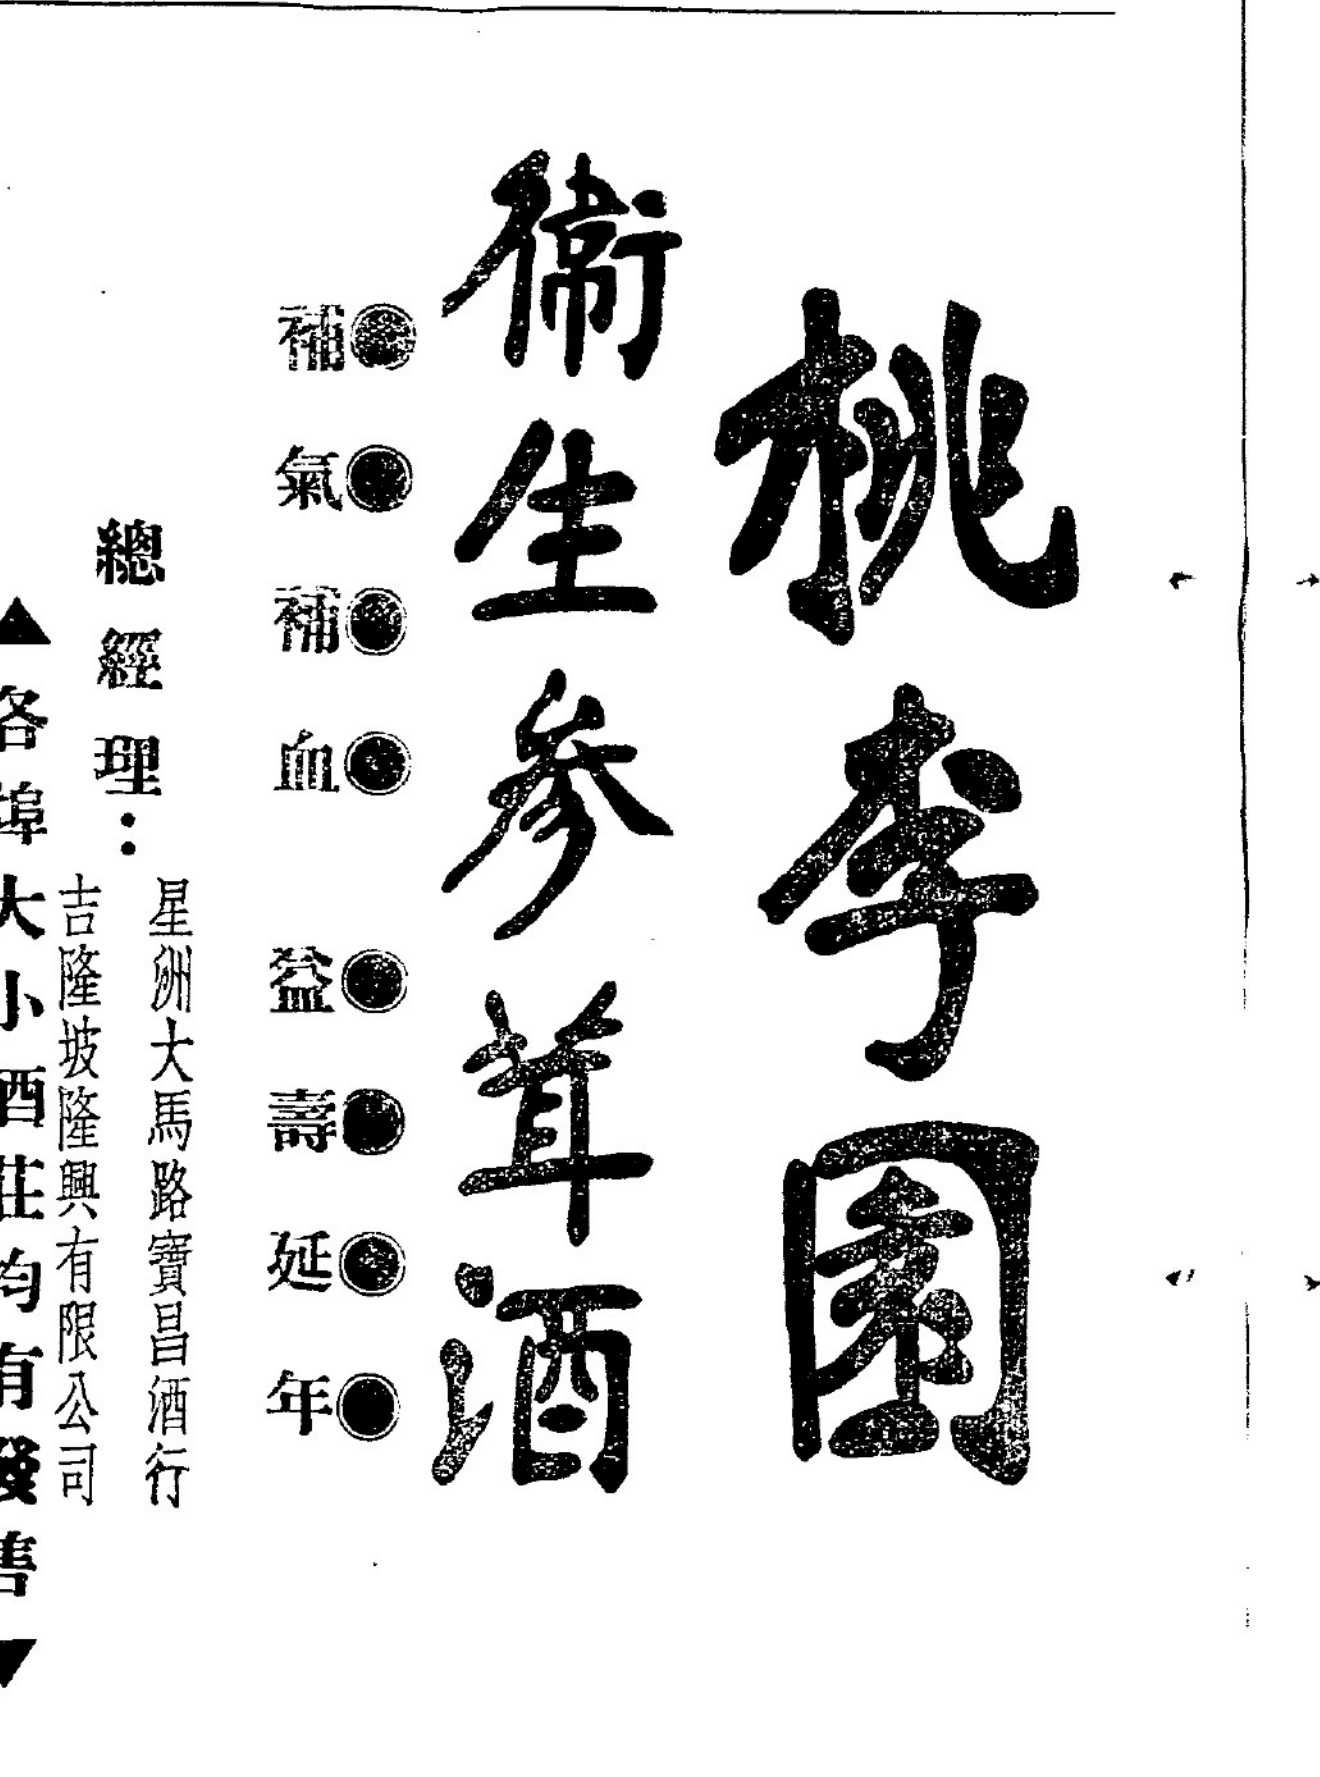 桃李園
衞生參茸酒
補氣補血 益壽延年
總經理：
星洲大馬路寶昌酒行
吉隆坡隆興有限公司
▲各埠大小酒莊均有發售▼